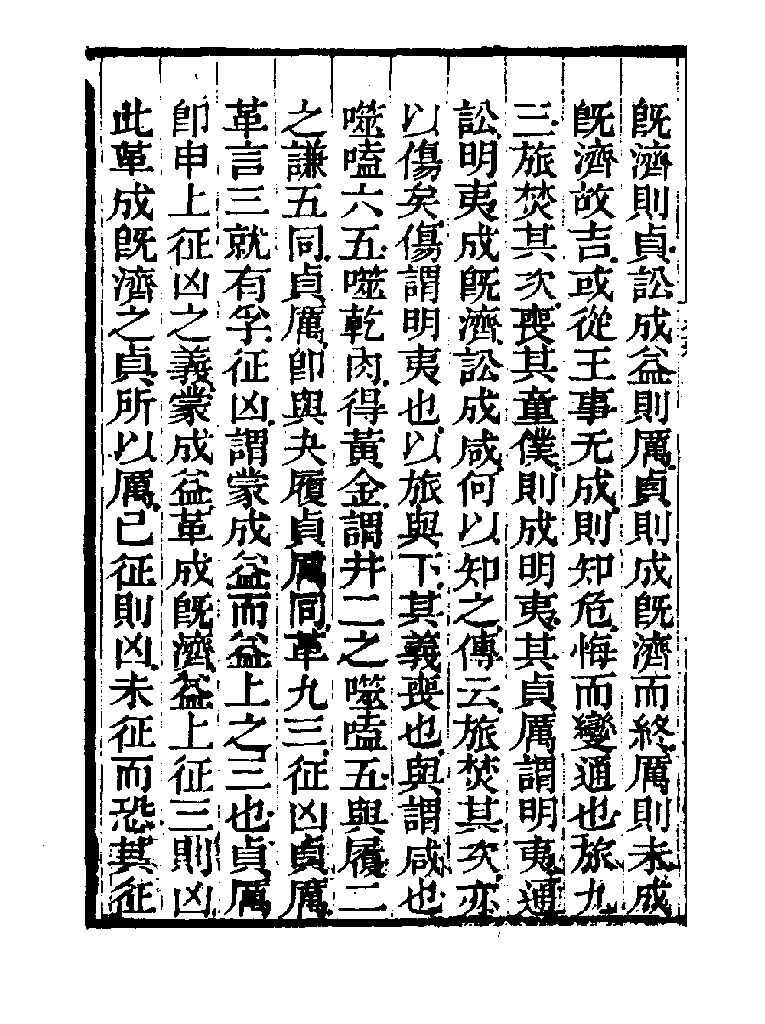 既濟則貞訟成益則厲貞則成既濟而終厲則未成
既濟故吉或從王事无成則知危悔而變通也旅九
三旅焚其次喪其童僕則成明夷其貞厲謂明夷通
訟明夷成既濟訟成咸何以知之傳云旅焚其次亦
以傷矣傷謂明夷也以旅與下其義喪也與謂咸也
噬嗑六五噬乾肉得黃金謂井二之噬嗑五與履二
之謙五同貞厲卽與夬履貞厲同革九三征凶貞厲
革言三就有孚征凶謂蒙成益而益上之三也貞厲
卽申上征凶之義蒙成益革成既濟益上征三則凶
此革成既濟之貞所以厲已征則凶未征而恐其征